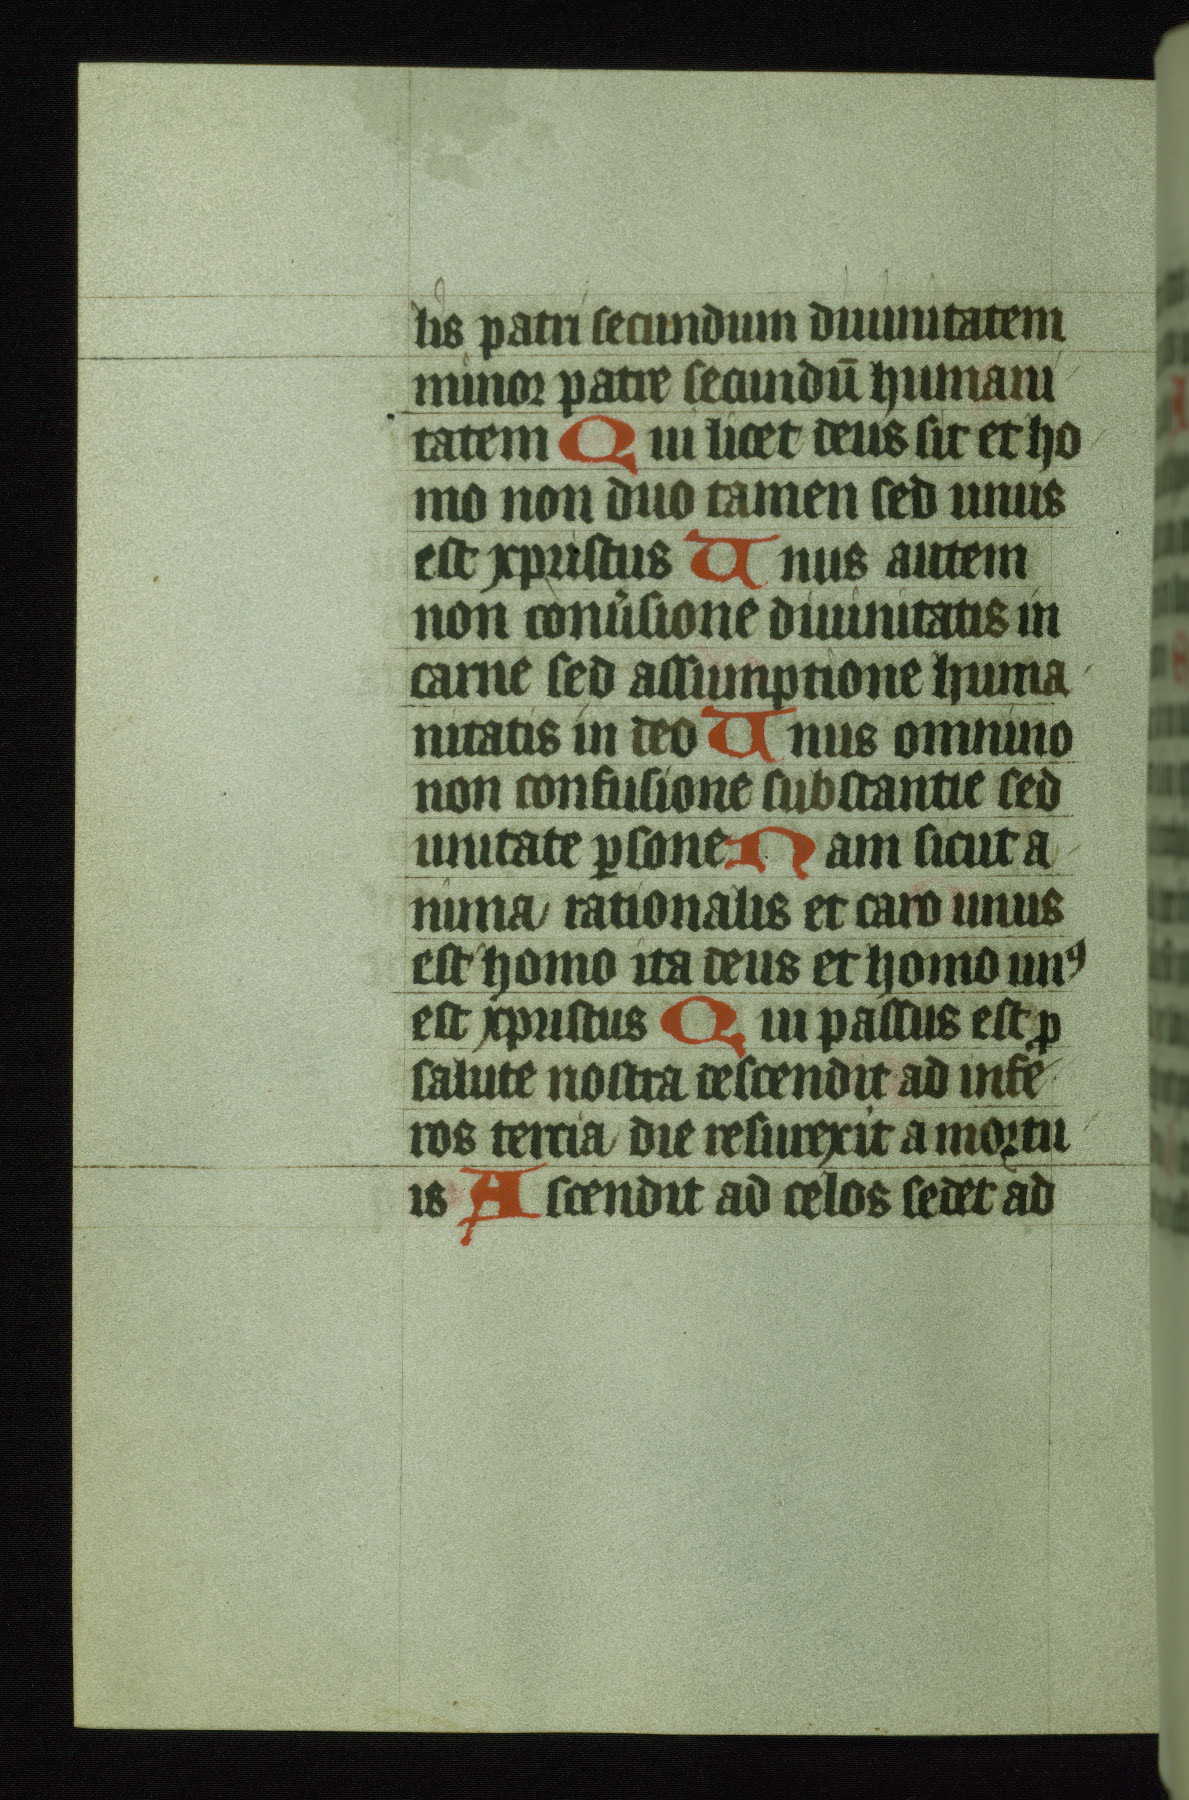 lis patri secundum diuinitatem
minor patre secundū humani
tatem Qui licet deus sit et ho
mo non duo tamen sed unus
est xpristus Unus autem
non conuīsione diuinitatis in
carne sed assumptione huma
nitatis in deo Unus omnino
non confusione substantie sed
unitate ꝑsone Nam sicut a
nima rationalis et caro unus
est homo ita deus et homo unꝰ
est xpristus Qui passus est ꝓ
salute nostra descendit ad infe
ros tercia die resurexit a mortu
is Ascendit ad celos sedet ad